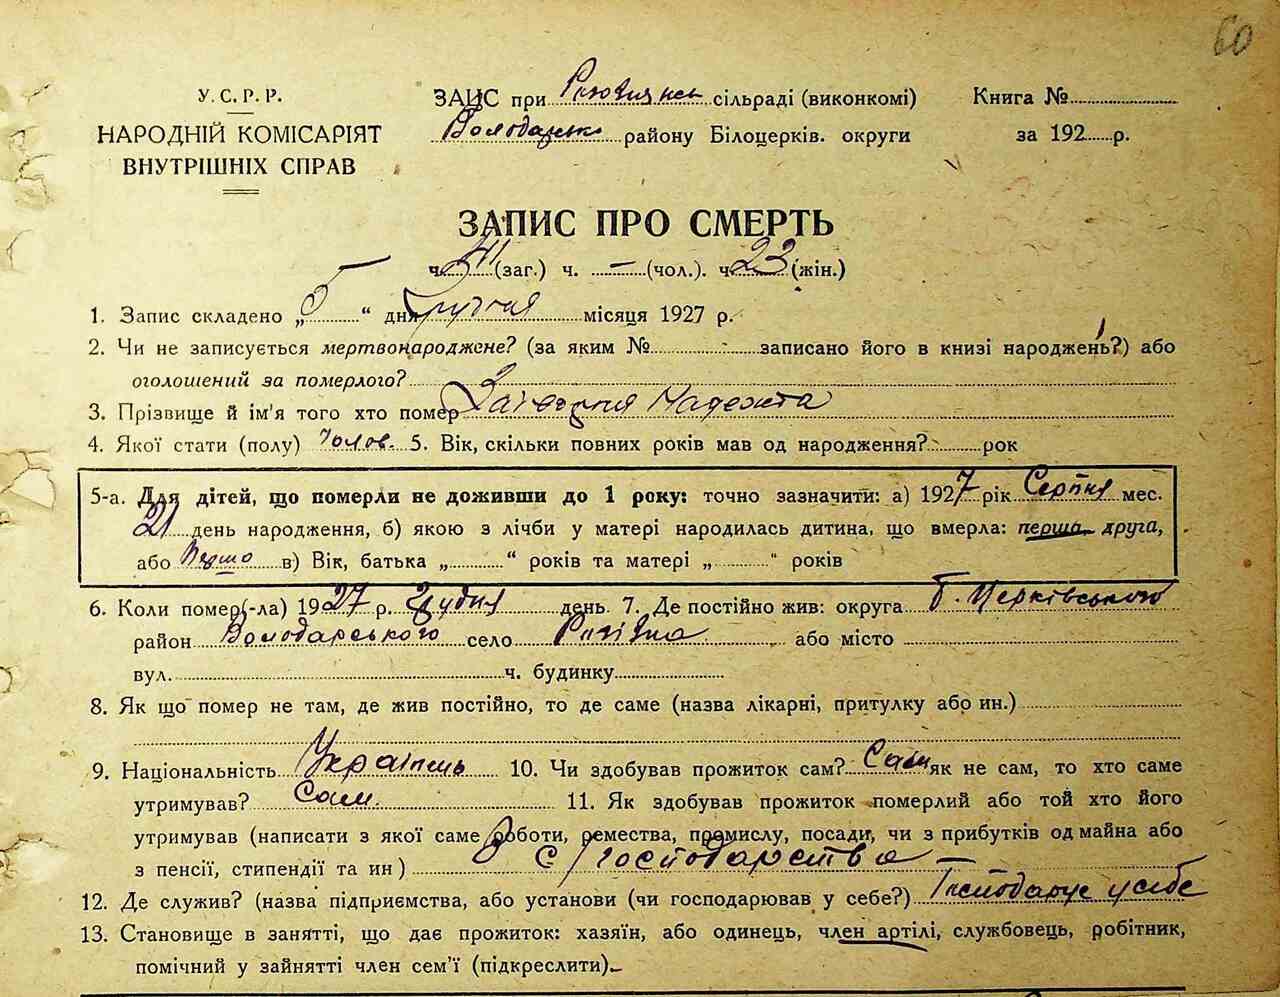 60
У. С. Р. Р.
НАРОДНІЙ КОМІСАРІЯТ
ВНУТРІШНІХ СПРАВ
ЗАПИС при сільраді (виконкомі)
Володарськ району Білоцерків. округи
Книга №
за 192 р.
ЗАПИС ПРО СМЕРТЬ
ч. 41 (заг.) ч. – (чол.). ч. 23 (жін.)
1. Запис складено „ “ дня Грудня місяця 1927 р.
2. Чи не записується мертвонароджене? (за яким № записано його в книзі народжень?) або
оголошений за померлого?
3. Прізвище й ім'я того хто помер Надежта
4. Якої стати (полу) Чолов. 5. Вік, скільки повних років мав од народження? рок
5-а. Для дітей, що померли не доживши до 1 року: точно зазначити: а) 1927 рік Серпня мес.
21 день народження, б) якою з лічби у матері народилась дитина, що вмерла: перша друга,
або в) Вік, батька „ “ років та матері „ “ років
6. Коли помер(-ла) 1927 р. Грудня день 7. Де постійно жив: округа Б. Церківського
район Володарського село або місто
вул. ч. будинку
8. Як що помер не там, де жив постійно, то де саме (назва лікарні, притулку або ин.)
9. Національність Українець 10. Чи здобував прожиток сам? Сам як не сам, то хто саме
утримував? Сам. 11. Як здобував прожиток померлий або той хто його
утримував (написати з якої саме роботи, ремества, промислу, посади, чи з прибутків од майна або
з пенсії, стипендії та ин) З с/господарства –
12. Де служив? (назва підприємства, або установи (чи господарював у себе?) Господарює у себе
13. Становище в занятті, що дає прожиток: хазяїн, або одинець, член артілі, службовець, робітник,
помічний у зайнятті член сем'ї (підкреслити).